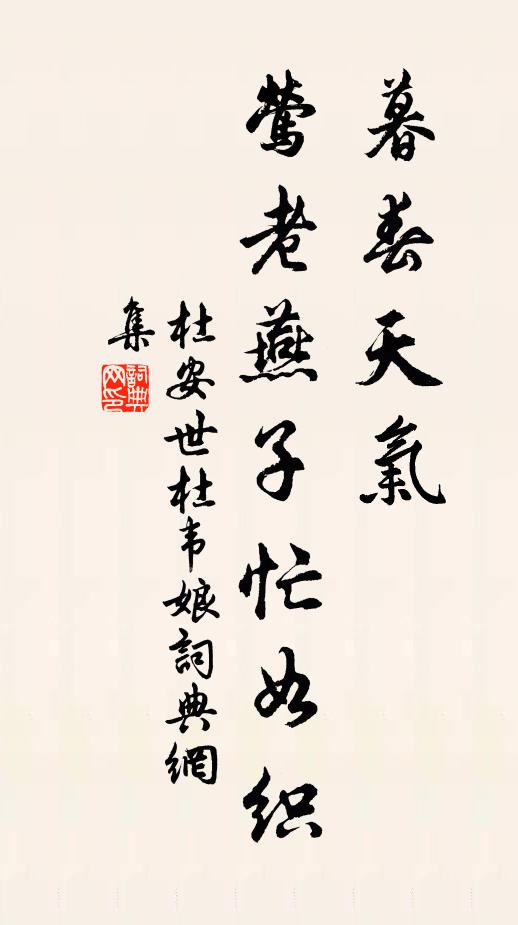 暮春天氣
鶯老燕子忙如织
杜安世杜韦娘詞典網
集
詞典
网印